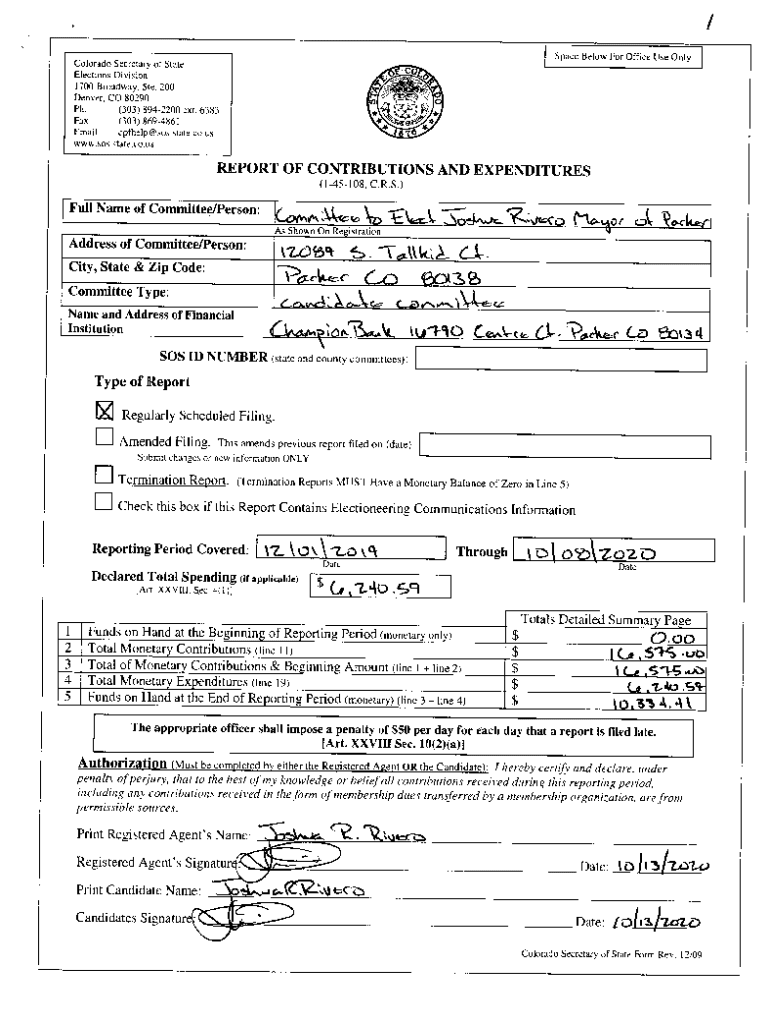 1
Colorado Secretary of State
Elections Division
1700 Broadway, Ste. 200
Denver, CO 80290
Ph: (303) 894-2200 ext. 6383
Fax (303) 869-4861
Email cpfhelp@sos.state.co.us
www.sos.state.co.us
Space Below For Office Use Only
STATE OF COLORADO
1876
REPORT OF CONTRIBUTIONS AND EXPENDITURES
(1-45-108, C.R.S.)
Full Name of Committee/Person: Committee to Elect Joshua Rivero Mayor of Parker
As Shown On Registration
Address of Committee/Person: 12089 S. Tallkid Ct.
City, State & Zip Code: Parker CO 80138
Committee Type: candidate committee
Name and Address of Financial
Institution Champion Bank 16790 Centre Ct. Parker CO 80134
SOS ID NUMBER (state and county committees):
Type of Report
Regularly Scheduled Filing.
Amended Filing. This amends previous report filed on (date)
Submit changes or new information ONLY
Termination Report. (Termination Reports MUST Have a Monetary Balance of Zero in Line 5)
Check this box if this Report Contains Electioneering Communications Information
Reporting Period Covered: 12\01\2019 Through 10\08\2020
Date Date
Declared Total Spending (if applicable) $ 6,240.59
[Art. XXVIII, Sec. 4(1)]
Totals Detailed Summary Page
1 Funds on Hand at the Beginning of Reporting Period (monetary only) $ 0.00
2 Total Monetary Contributions (line 11) $ 16,575.00
3 Total of Monetary Contributions & Beginning Amount (line 1 + line 2) $ 16,575.00
4 Total Monetary Expenditures (line 19) $ 6,240.59
5 Funds on Hand at the End of Reporting Period (monetary) (line 3 – line 4) $ 10,334.41
The appropriate officer shall impose a penalty of $50 per day for each day that a report is filed late.
[Art. XXVIII Sec. 10(2)(a)]
Authorization (Must be completed by either the Registered Agent OR the Candidate): I hereby certify and declare, under
penalty of perjury, that to the best of my knowledge or belief all contributions received during this reporting period,
including any contributions received in the form of membership dues transferred by a membership organization, are from
permissible sources.
Print Registered Agent's Name: Joshua R. Rivero
Registered Agent's Signature: Date: 10/13/2020
Print Candidate Name: Joshua R. Rivero
Candidates Signature: Date: 10/13/2020
Colorado Secretary of State Form Rev. 12/09